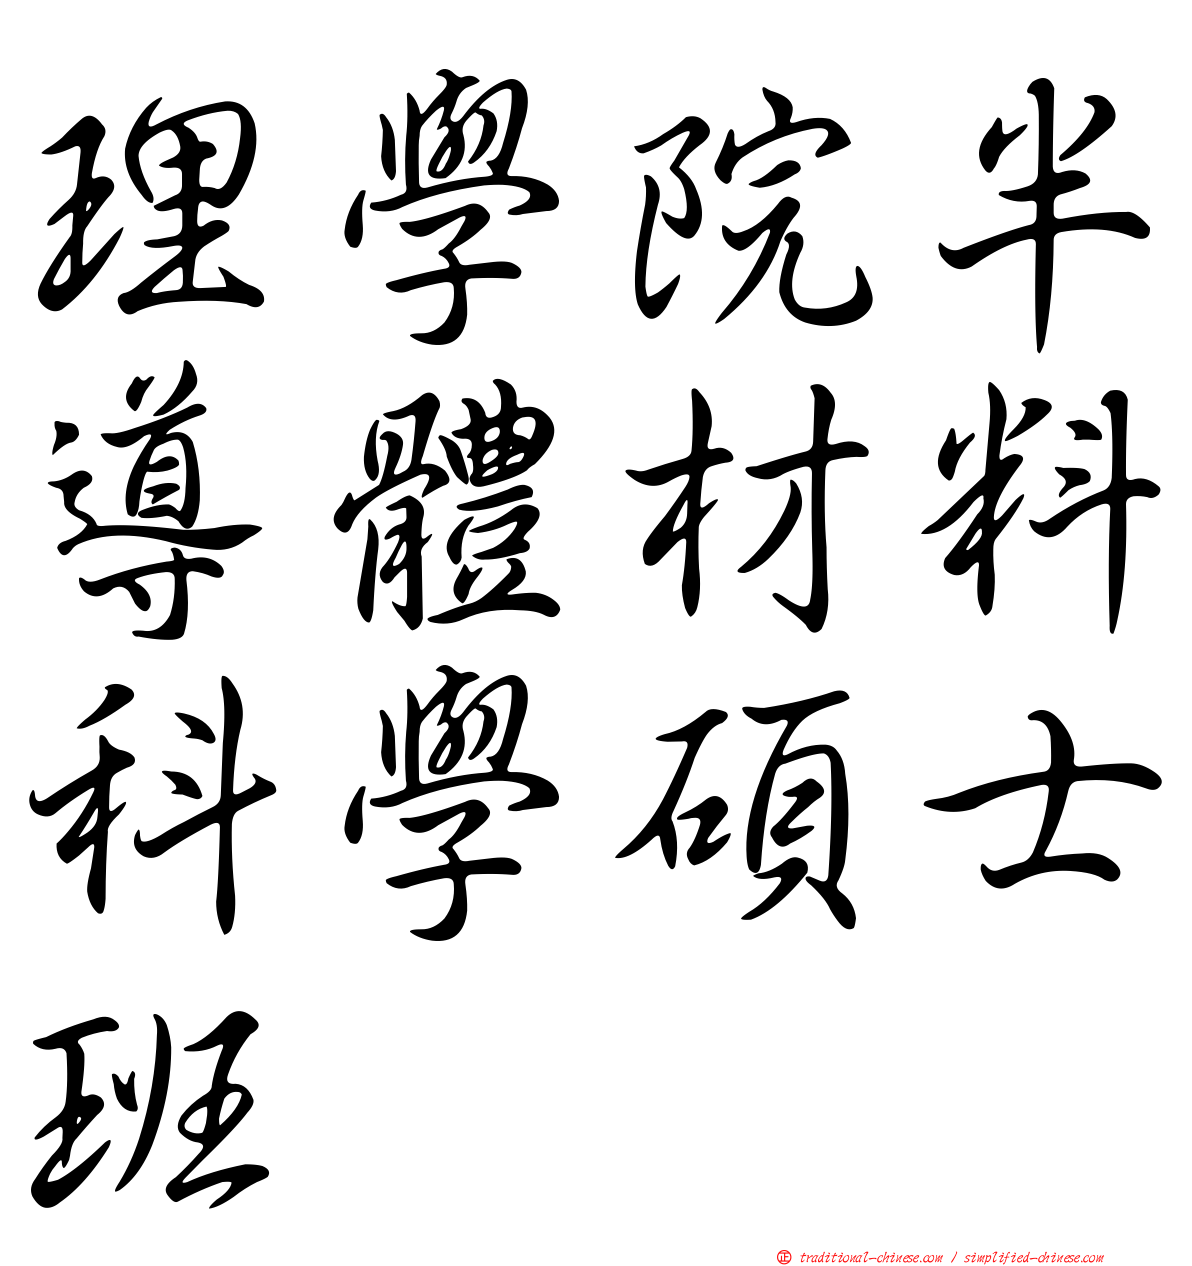 理學院半
導體材料
科學碩士
班
正 traditional-chinese.com / simplified-chinese.com